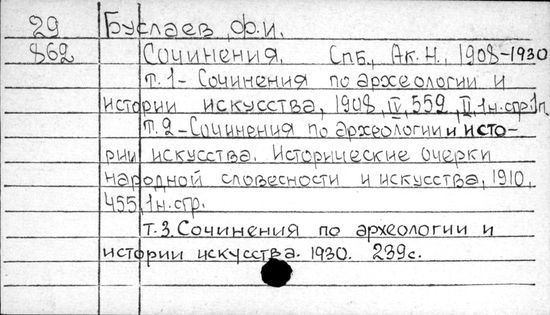 29 Буслаев Ф.И.
862 Сочинения. Спб., Ак. Н., 1908-1930
т. 1- Сочинения по археологии и
истории искусства, 1908, IV, 559, II, 1н.стр. 1п
т. 2-Сочинения по археологии и исто-
рии искусства. Исторические очерки
народной словесности и искусства, 1910,
455, 1н.стр.
т. 3. Сочинения по археологии и
истории искусства. 1930. 239с.